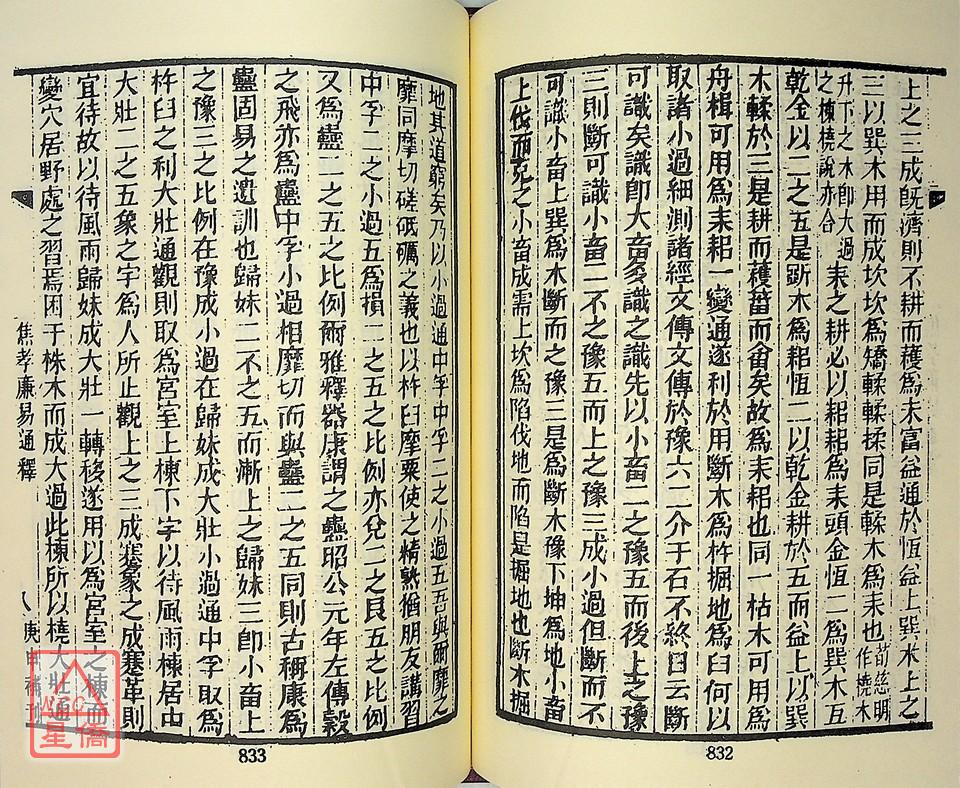 上之三成旣濟則不耕而穫爲未富益通於恆益上巽木上之
三以巽木用而成坎坎爲矯輮輮揉同是輮木爲耒也荀慈明作橈木
升下之木卽大過之棟橈說亦合耒之耕必以耜耜爲耒頭金恆二爲巽木互
乾金以二之五是斲木爲耜恆二以乾金耕於五而益上以巽
木輮於三是耕而穫菑而畬矣故爲耒耜也同一枯木可用爲
舟楫可用爲耒耜一變通遂利於用斷木爲杵掘地爲臼何以
取諸小過細測諸經文傳文傳於豫六二介于石不終日云斷
可識矣識卽大畜多識之識先以小畜二之豫五而後上之豫
三則斷可識小畜二不之豫五而上之豫三成小過但斷而不
可識小畜上巽爲木斷而之豫三是爲斷木豫下坤爲地小畜
上伐而克之小畜成需上坎爲陷伐地而陷是掘地也斷木掘
832
地其道窮矣乃以小過通中孚中孚二之小過五吾與爾靡之
靡同摩切磋砥礪之義也以杵臼摩粟使之精熟猶朋友講習
中孚二之小過五爲損二之五之比例亦兌二之艮五之比例
又爲蠱二之五之比例爾雅釋器康謂之蠱昭公元年左傳穀
之飛亦爲蠱中孚小過相摩切而與蠱二之五同則古稱康爲
蠱固易之遺訓也歸妹二不之五而漸上之歸妹三卽小畜上
之豫三之比例在豫成小過在歸妹成大壯小過通中孚取爲
杵臼之利大壯通觀則取爲宮室上棟下宇以待風雨棟居中
大壯二之五象之宇爲人所止觀上之三成蹇象之成蹇革則
宜待故以待風雨歸妹成大壯一轉移遂用以爲宮室之棟而
變穴居野處之習焉困于株木而成大過此棟所以橈大壯通
焦孝廉易通釋
八
庚申補刊
833
星僑